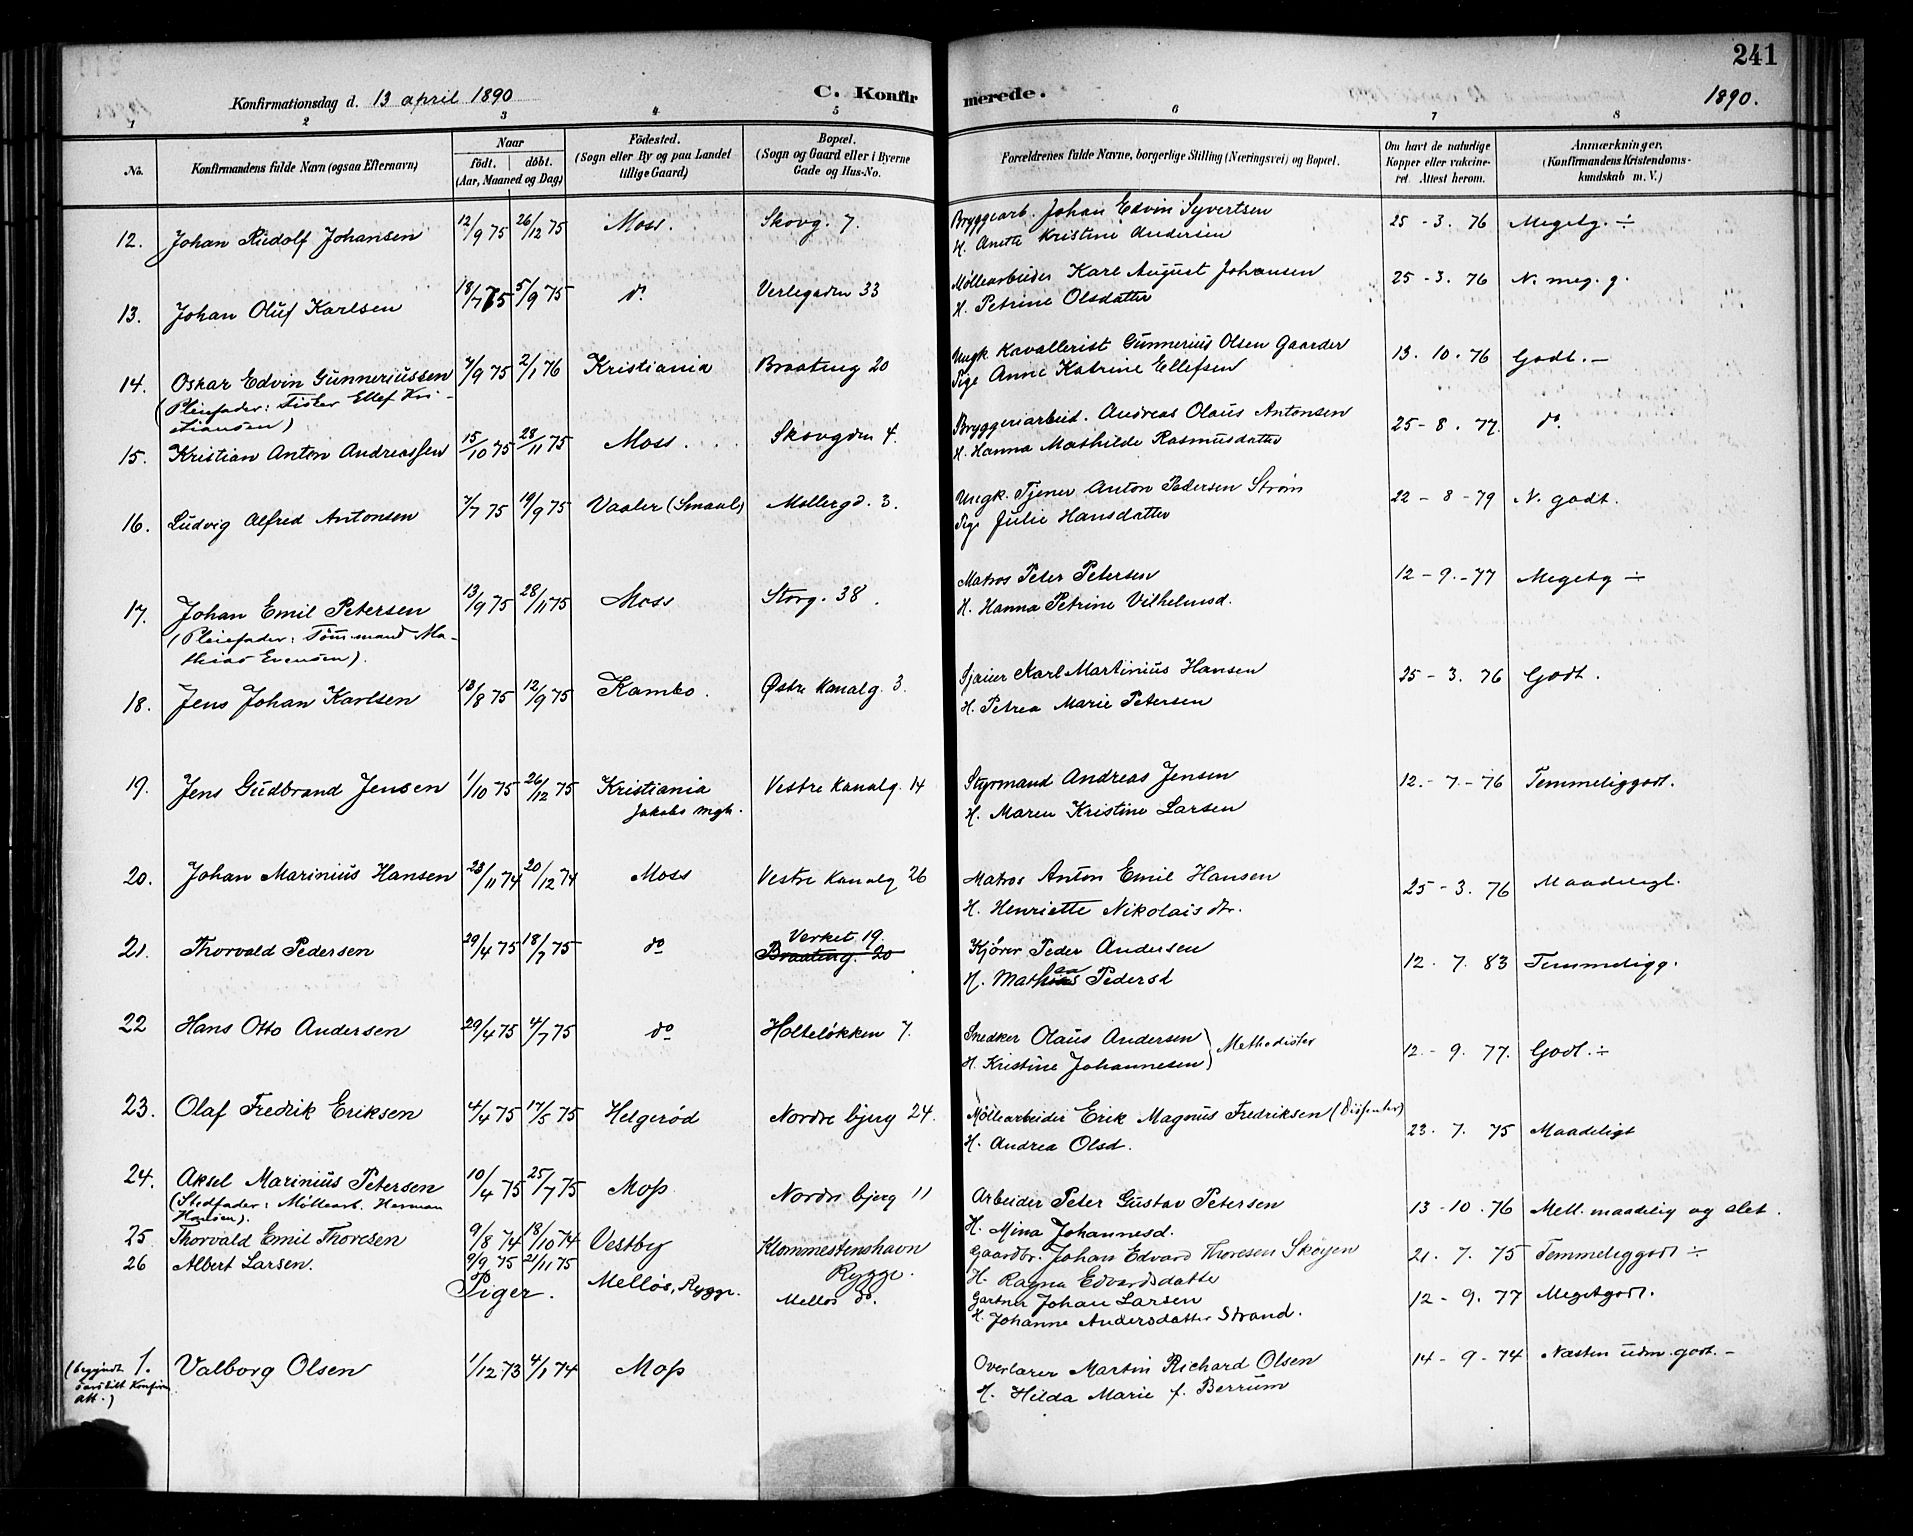 241
Konfirmationsdag d. 13 april 1890
C. Konfirmerede.
1890.
1 2 3 4 5 6 7 8
No.
Konfirmandens fulde Navn (ogsaa Efternavn)
Naar
födt. | döbt.
(Aar, Maaned og Dag)
Födested.
(Sogn eller By og paa Landet
tillige Gaard)
Bopæl.
(Sogn og Gaard eller i Byerne
Gade og Hus-No.
Forældrenes fulde Navne, borgerlige Stilling (Næringsvei) og Bopæl.
Om havt de naturlige
Kopper eller vaksine-
ret. Attest herom.
Anmærkninger.
(Konfirmandens Kristendoms-
kundskab m. V.)
12. Johan Rudolf Johansen 12/9 75 26/12 75 Moss. Skovg. 7. Bryggearb. Johan Edvin Syvertsen 25-3. 76 Megetg. ÷
H. Anette Kristine Andersen
13. Johan Oluf Karlsen 18/7 75 5/9 75 do Verlegaden 33 Møllearbeider Karl August Johansen 25-3. 76 N. meg. g.
H. Petrine Olsdatter
14. Oskar Edvin Gunneriussen 7/9 75 2/1 76 Kristiania Braateng 20 Ungk. Kavallerist Gunnerius Olsen Gaarder 13. 10. 76 Godt. —
(Pleiefader: Fisker Ellef Kri- Pige Anne Katrine Ellefsen
stiansen)
15. Kristian Anton Andreassen 15/10 75 28/11 75 Moss. Skovgden 4. Bryggeriarbeid. Andreas Olaus Antonsen 25-8. 77. do
H. Hanna Mathilde Rasmusdatter
16. Ludvig Alfred Antonsen 7/7 75 19/9 75 Vaaler (Smaal) Møllergd. 3. Ungk. Tjener Anton Pedersen Strøm 22-8-79 N. godt.
Pige Julie Hansdatter
17. Johan Emil Petersen 13/9 75 28/11 75 Moss Storg. 38. Matros Peter Petersen 12-9.-77 Megetg ÷
(Pleiefader: Tømmand Ma- H. Hanna Petrine Vilhelmsd.
thias Evensen).
18. Jens Johan Karlsen 13/8 75 12/9 75 Kambo. Østre Kanalg. 3. Sjauer Karl Martinius Hansen 25-3. 76 Godt.
H. Petrea Marie Petersen
19. Jens Gudbrand Jensen 1/10 75 26/12 75 Kristiania Vestre Kanalg. 14 Styrmand Andreas Jensen 12-7.-76 Temmeliggodt.
Jakobs mgh. H. Maren Kristine Larsen
20. Johan Marinius Hansen 23/11 74 20/12 74 Moss Vestre Kanalg 26 Matros Anton Emil Hansen 25-3. 76 Maadeligt.
H. Henriette Nikolaisdtr.
21. Thorvald Pedersen 29/4 75 18/7 75 do Verket 19. Kjører Peder Andersen 12. 7. 83 Temmeligg.
Braateng. 20 H. Mathea Pedersd
22 Hans Otto Andersen 29/4 75 4/7 75 do Holteløkken 7. Snedker Olaus Andersen } Methodister 12.-9. 77. Godt. ÷
H. Kristine Johannesen
23. Olaf Fredrik Eriksen 4/4 75 17/5 75 Helgerød Nordre bjerg 24. Møllearbeider Erik Magnus Fredriksen (Dissenter) 23. 7. 75 Maadeligt
H. Andrea Olsd.
24. Aksel Marinius Petersen 10/4 75 25/7 75 Moss Nordre bjerg 11 Arbeider Peter Gustav Petersen 13-10. 76 Mell. maadelig og slet.
(Stedfader: Møllearb. Herman H. Mina Johannesd.
Hansen).
25 Thorvald Emil Thoresen 9/8 74 18/10 74 Vestby Klommestenshavn Gaardbr. Johan Edvard Thoresen Skøyen 21. 7. 75 Temmeliggodt ÷
Rygge. H. Ragna Edvardsdatter
26 Albert Larsen. 9/9 75 21/11 75 Melløs, Rygge. Melløs do. Gartner Johan Larsen 12-9. 77 Megetgodt.
H. Johanne Andersdatter Strand.
Piger.
(begyndt 1. Valborg Olsen 1/12 73 4/1 74 Moss Overlærer Martin Richard Olsen 14-9-74 Næsten udm. godt. —
særskilt Konfirm. H. Hilda Marie f. Berrum
att.)